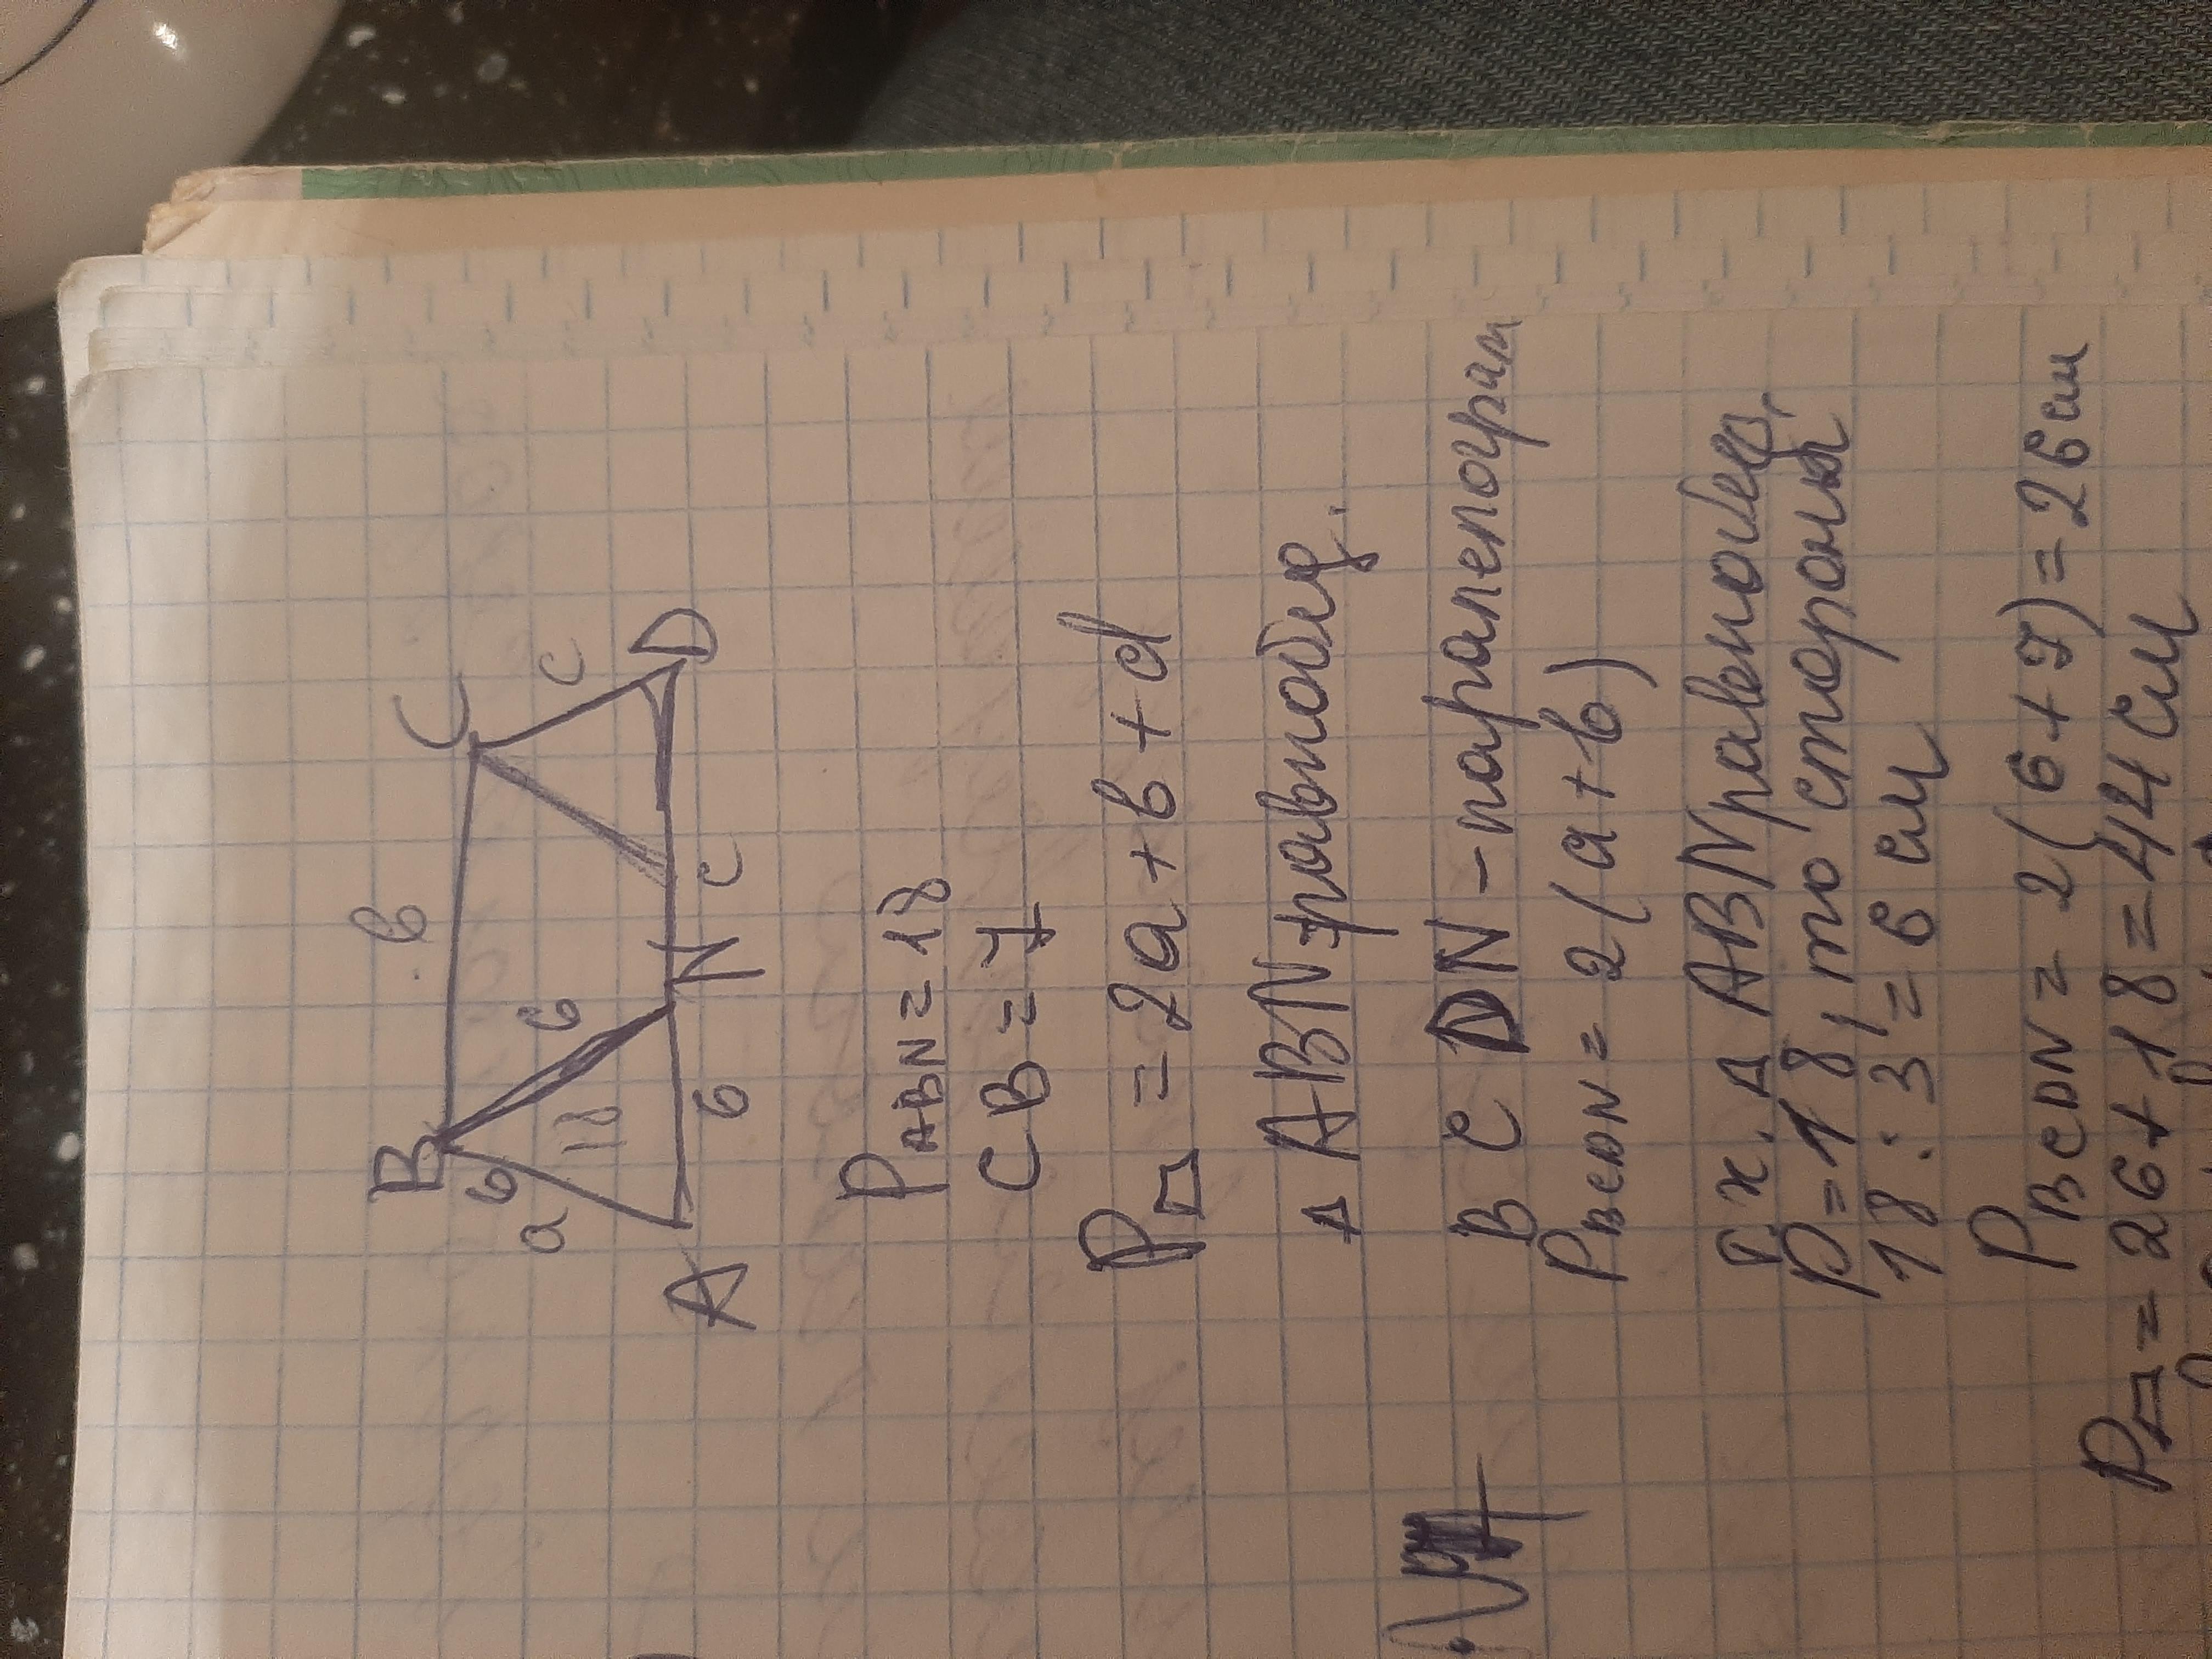 B b C
a 6 18 6 c
A 6 N c D
P ABN = 18
CB = 7
P▱ = 2a + b + d
Δ ABN равнобед.
B C D N - параллелограм
P BCDN = 2(a + b)
т.к. Δ ABN равнобед,
P = 18, то стороны
18 : 3 = 6 см
P BCDN = 2(6 + 7) = 26 см
P▱ = 26 + 18 = 44 см